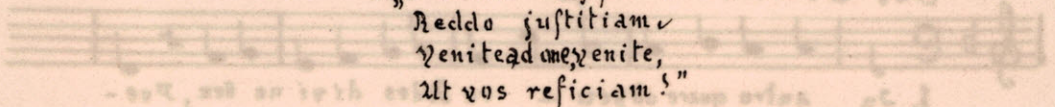 "Reddo justitiam,
Venite ad me, venite,
Ut vos reficiam!"